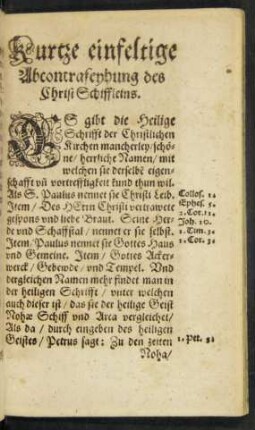 Kurtze einfeltige
Abcontrafeyhung des
Christ Schiffleins.
ES gibt die Heilige
Schrifft der Christlichen
Kirchen mancherley / schö-
ne / herrliche Namen / mit
welchen sie derselbē eigen-
schafft uñ vortrefftigkeit kund thun wil.
Als S. Paulus nennet sie Christi Leib. Colloſ. 1.
Item / Des HErrn Christi vertrawete Ephes. 5.
gespons und liebe Braut. Seine Her- 2. Cor. 11.
de und Schaffstal / nennet er sie selbst. Joh. 10.
Item / Paulus nennet sie Gottes Haus 1. Tim. 3.
und Gemeine. Item / Gottes Acker- 1. Cor. 3.
werck / Gebewde / und Tempel. Und
dergleichen Namen mehr findet man in
der heiligen Schrifft / unter welchen
auch dieser ist / das sie der heilige Geist
Nohæ Schiff und Arca vergleichet /
Als da / durch eingeben des heiligen
Geistes / Petrus sagt: Zu den zeiten 1. Pet. 3.
Noha /